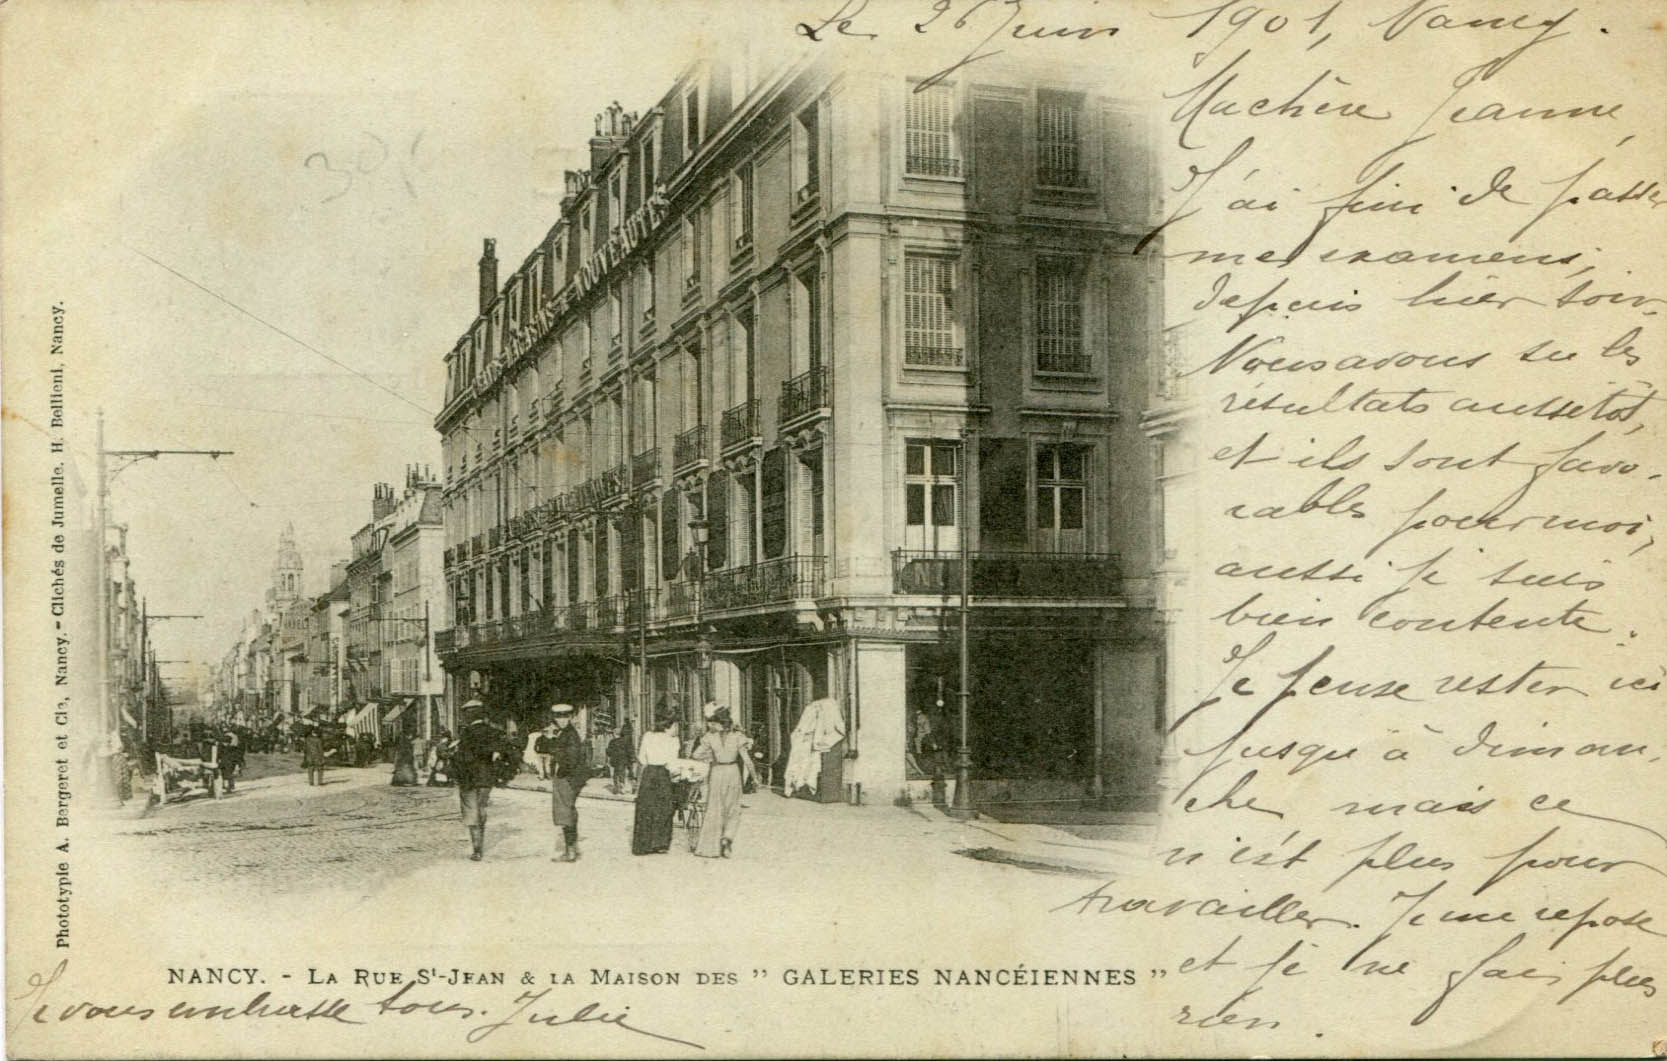 Le 26 Juin 1901, Nancy.
Ma chère Jeanne,
J'ai fini de passer
mes examens,
depuis hier soir.
Nous avons su les
résultats aussitôt,
et ils sont favo-
rables pour moi,
aussi je suis
bien contente.
Je pense rester ici
jusqu'à diman-
che mais ce
n'est plus pour
travailler. Je me repose
et je ne fais plus
rien.
Je vous embrasse tous. Julie
GDS MAGASINS DE NOUVEAUTES
NANCY. - LA RUE St-JEAN & LA MAISON DES " GALERIES NANCÉIENNES "
Phototypie A. Bergeret et Cie, Nancy. - Clichés de Jumelle. H. Bellieni, Nancy.